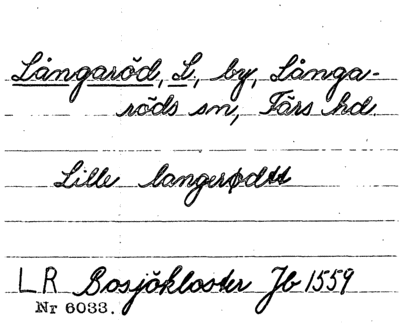 Långaröd, L, by, Långa-
röds sn, Färs hd.
Lille langerødtt
LR Bosjökloster Jb 1559
Nr 6033.